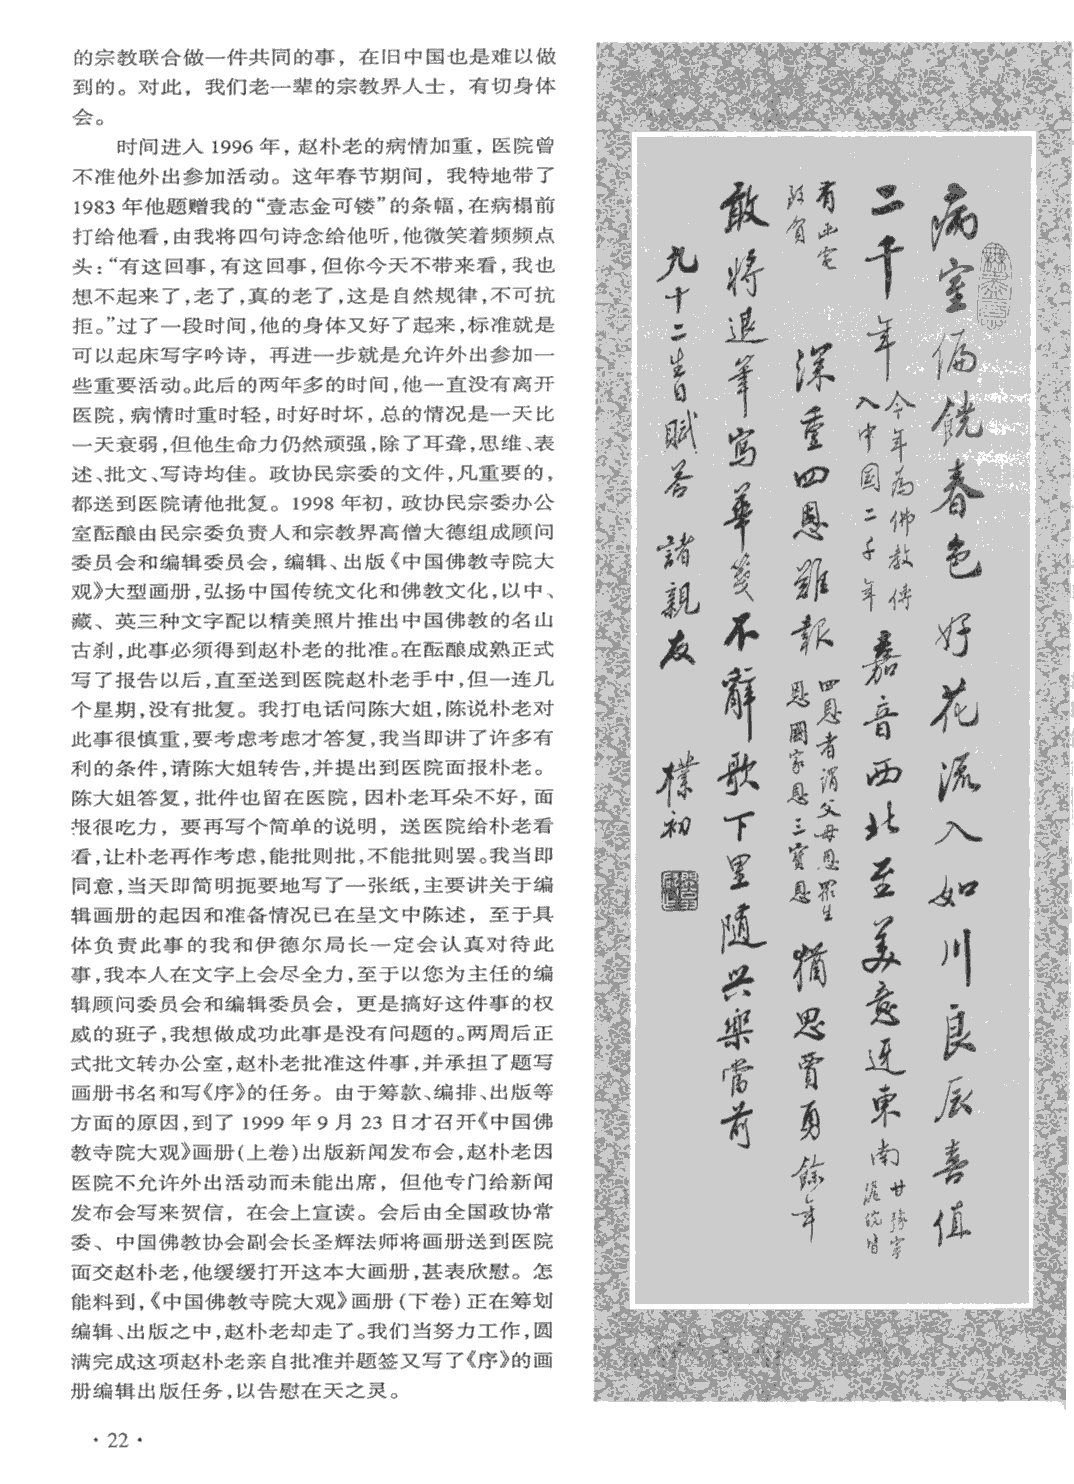 的宗教联合做一件共同的事，在旧中国也是难以做
到的。对此，我们老一辈的宗教界人士，有切身体
会。
时间进入 1996 年，赵朴老的病情加重，医院曾
不准他外出参加活动。这年春节期间，我特地带了
1983 年他题赠我的“壹志金可镂”的条幅，在病榻前
打给他看，由我将四句诗念给他听，他微笑着频频点
头：“有这回事，有这回事，但你今天不带来看，我也
想不起来了，老了，真的老了，这是自然规律，不可抗
拒。”过了一段时间，他的身体又好了起来，标准就是
可以起床写字吟诗，再进一步就是允许外出参加一
些重要活动。此后的两年多的时间，他一直没有离开
医院，病情时重时轻，时好时坏，总的情况是一天比
一天衰弱，但他生命力仍然顽强，除了耳聋，思维、表
述、批文、写诗均佳。政协民宗委的文件，凡重要的，
都送到医院请他批复。1998 年初，政协民宗委办公
室酝酿由民宗委负责人和宗教界高僧大德组成顾问
委员会和编辑委员会，编辑、出版《中国佛教寺院大
观》大型画册，弘扬中国传统文化和佛教文化，以中、
藏、英三种文字配以精美照片推出中国佛教的名山
古刹，此事必须得到赵朴老的批准。在酝酿成熟正式
写了报告以后，直至送到医院赵朴老手中，但一连几
个星期，没有批复。我打电话问陈大姐，陈说朴老对
此事很慎重，要考虑考虑才答复，我当即讲了许多有
利的条件，请陈大姐转告，并提出到医院面报朴老。
陈大姐答复，批件也留在医院，因朴老耳朵不好，面
报很吃力，要再写个简单的说明，送医院给朴老看
看，让朴老再作考虑，能批则批，不能批则罢。我当即
同意，当天即简明扼要地写了一张纸，主要讲关于编
辑画册的起因和准备情况已在呈文中陈述，至于具
体负责此事的我和伊德尔局长一定会认真对待此
事，我本人在文字上会尽全力，至于以您为主任的编
辑顾问委员会和编辑委员会，更是搞好这件事的权
威的班子，我想做成功此事是没有问题的。两周后正
式批文转办公室，赵朴老批准这件事，并承担了题写
画册书名和写《序》的任务。由于筹款、编排、出版等
方面的原因，到了 1999 年 9 月 23 日才召开《中国佛
教寺院大观》画册（上卷）出版新闻发布会，赵朴老因
医院不允许外出活动而未能出席，但他专门给新闻
发布会写来贺信，在会上宣读。会后由全国政协常
委、中国佛教协会副会长圣辉法师将画册送到医院
面交赵朴老，他缓缓打开这本大画册，甚表欣慰。怎
能料到，《中国佛教寺院大观》画册（下卷）正在筹划
编辑、出版之中，赵朴老却走了。我们当努力工作，圆
满完成这项赵朴老亲自批准并题签又写了《序》的画
册编辑出版任务，以告慰在天之灵。
· 22 ·
病室偏饶春色 好花流入如川 良辰喜值
二千年 今年為佛教傳入中国二千年 嘉音西北至 美意迓東南
深重四恩難報 四恩者谓父母恩眾生恩國家恩三寶恩 猶思賈勇餘年
敢將退筆寫華箋 不辭歌下里 隨兴樂當前
九十二生日賦答 諸親友 樸初